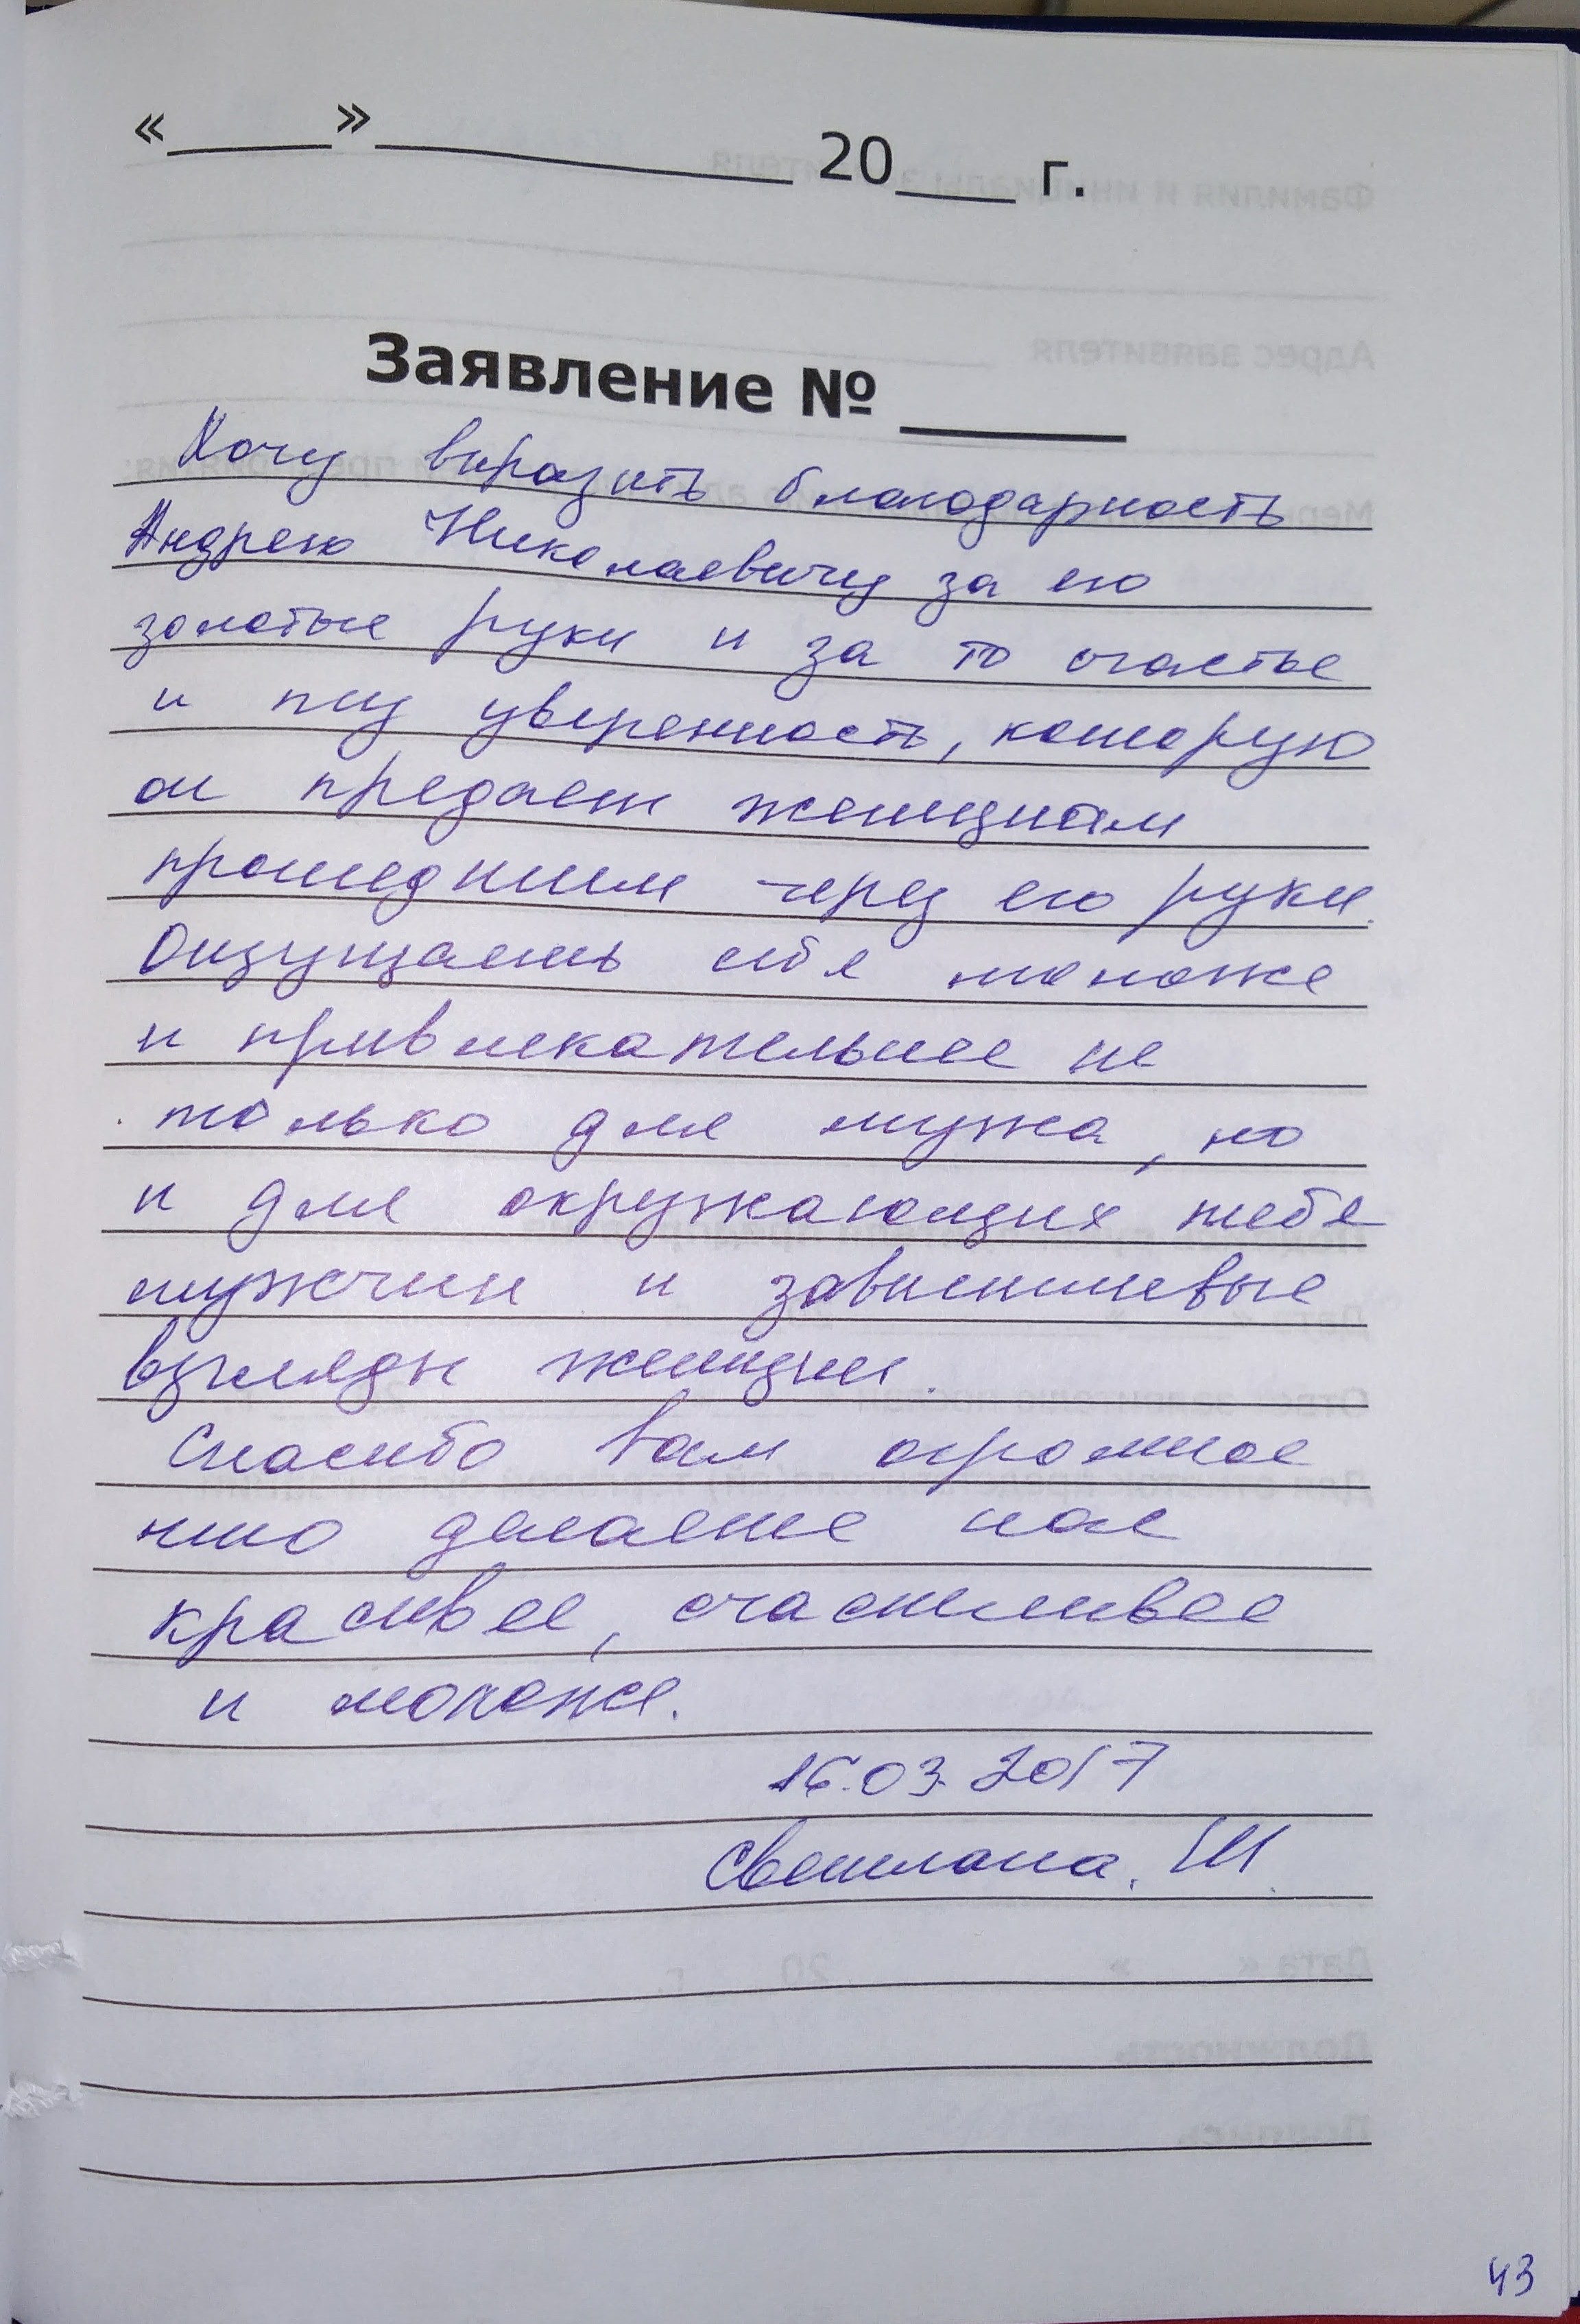 «____»____________ 20____ г.
Заявление № ______
Хочу выразить благодарность
Андрею Николаевичу за его
золотые руки и за то счастье
и ту уверенность, которую
он предает женщинам
прошедшим через его руки.
Ощущаешь себя моложе
и привлекательнее не
только для мужа, но
и для окружающих тебя
мужчин и завистливые
взгляды женщин.
Спасибо Вам огромное
что делаете нас
красивее, счастливее
и моложе.
16.03.2017
Светлана. Ш.
43